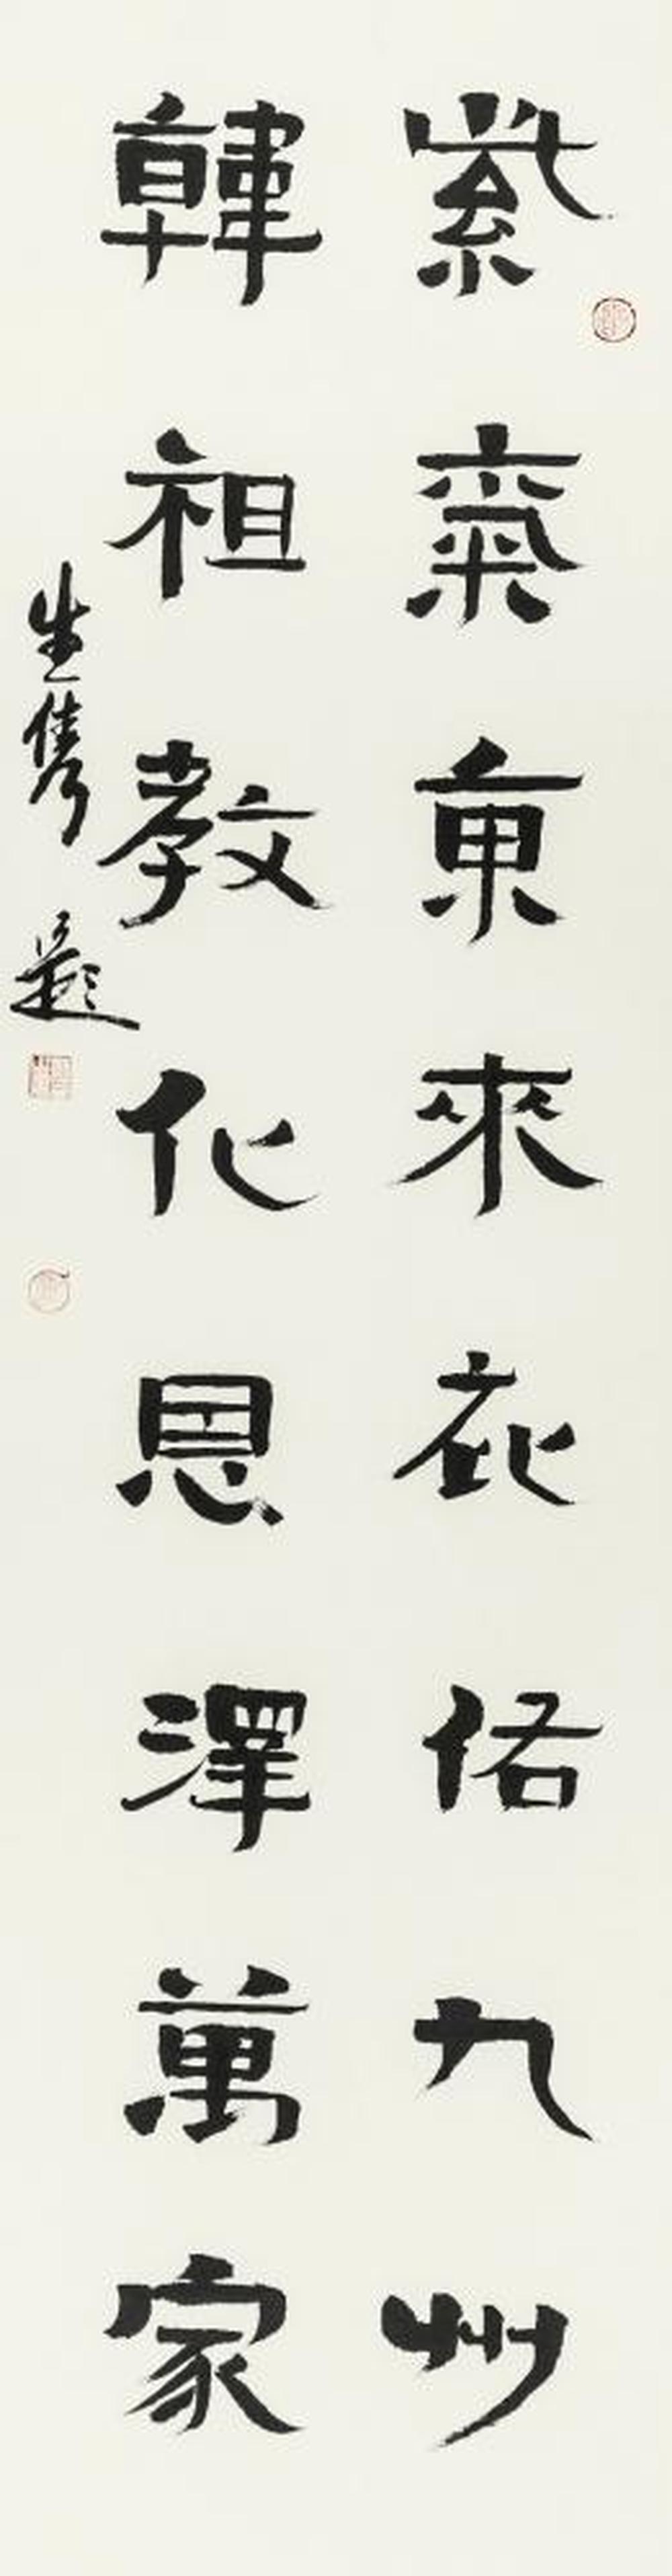 紫氣東來庇佑九州
韓祖教化恩澤萬家
生雋題